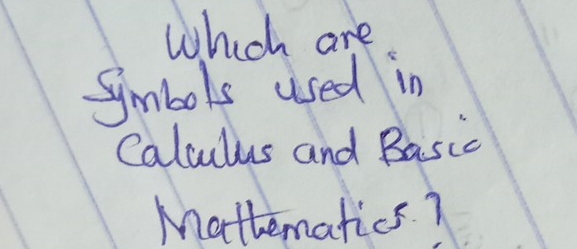 Which are
Symbols used in
Calculus and Basic
Mathematics?